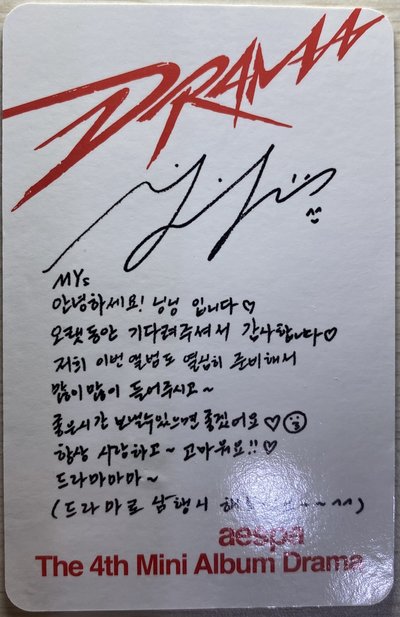 DRAMA
MYs
안녕하세요! 닝닝 입니다♡
오랫동안 기다려주셔서 감사합니다♡
저희 이번 앨범도 열심히 준비해서
많이많이 들어주시고~
좋은시간 보낼수있으면 좋겠어요♡
항상 사랑하고~ 고마워요!!♡
드라마마마~
(드라마로 삼행시 ~~^^)
aespa
The 4th Mini Album Drama